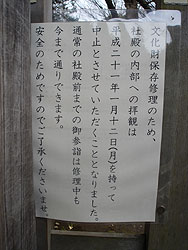 文化財保存修理のため、
社殿の内部への拝観は
平成二十一年一月十二日(月)を持って
中止とさせていただくこととなりました。
通常の社殿前までの御参詣は修理中も
今まで通りできます。
安全のためですのでご了承くださいませ。